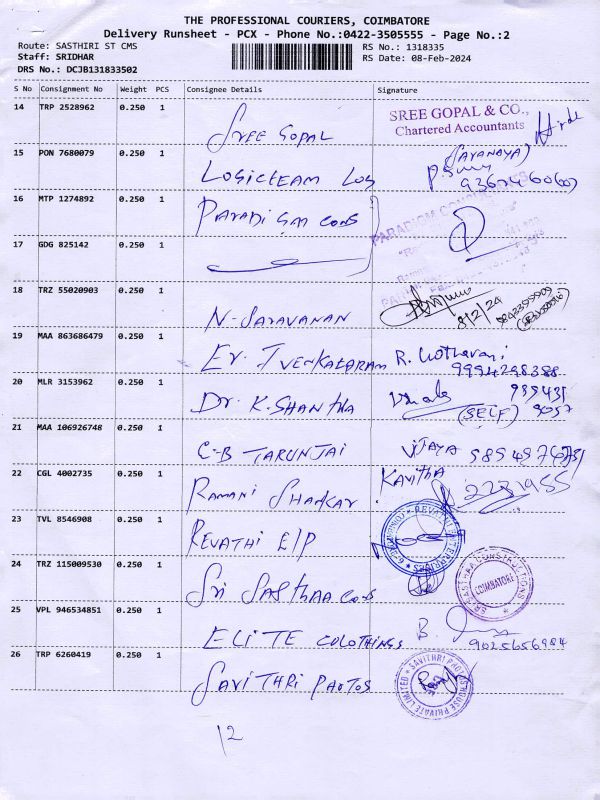 THE PROFESSIONAL COURIERS, COIMBATORE
Delivery Runsheet - PCX - Phone No.:0422-3505555 - Page No.:2
Route: SASTHIRI ST CMS
RS No.: 1318335
Staff: SRIDHAR
RS Date: 08-Feb-2024
DRS No.: DCJB131833502
S No Consignment No Weight PCS Consignee Details Signature
14 TRP 2528962 0.250 1 SREE GOPAL
SREE GOPAL & CO.,
Chartered Accountants
15 PON 7680079 0.250 1 LOGICTEAM LOG
16 MTP 1274892 0.250 1 PARADIGM CONS
17 GDG 825142 0.250 1
18 TRZ 55020903 0.250 1 N-SARAVANAN
8/2/24
19 MAA 863686479 0.250 1 Er. J VENKATARAM R.
9994298388
20 MLR 3153962 0.250 1 Dr K.SHANTHA
(SELF)
21 MAA 106926748 0.250 1 C-B TARUNJAI VIJAYA
22 CGL 4002735 0.250 1 RAMANI SHANKAR Kavitha
2231955
23 TVL 8546908 0.250 1 REVATHI E/P
REVATHI ENTERPRISES
24 TRZ 115009530 0.250 1 Sri SASTHAA CONS
SRI SASTHAA CONSTRUCTIONS
COIMBATORE
25 VPL 946534851 0.250 1 ELITE COLOTHINGS B.
9025656984
26 TRP 6260419 0.250 1 SAVITHRI PHOTOS
SAVITHRI PHOTO HOUSE PRIVATE LIMITED
12